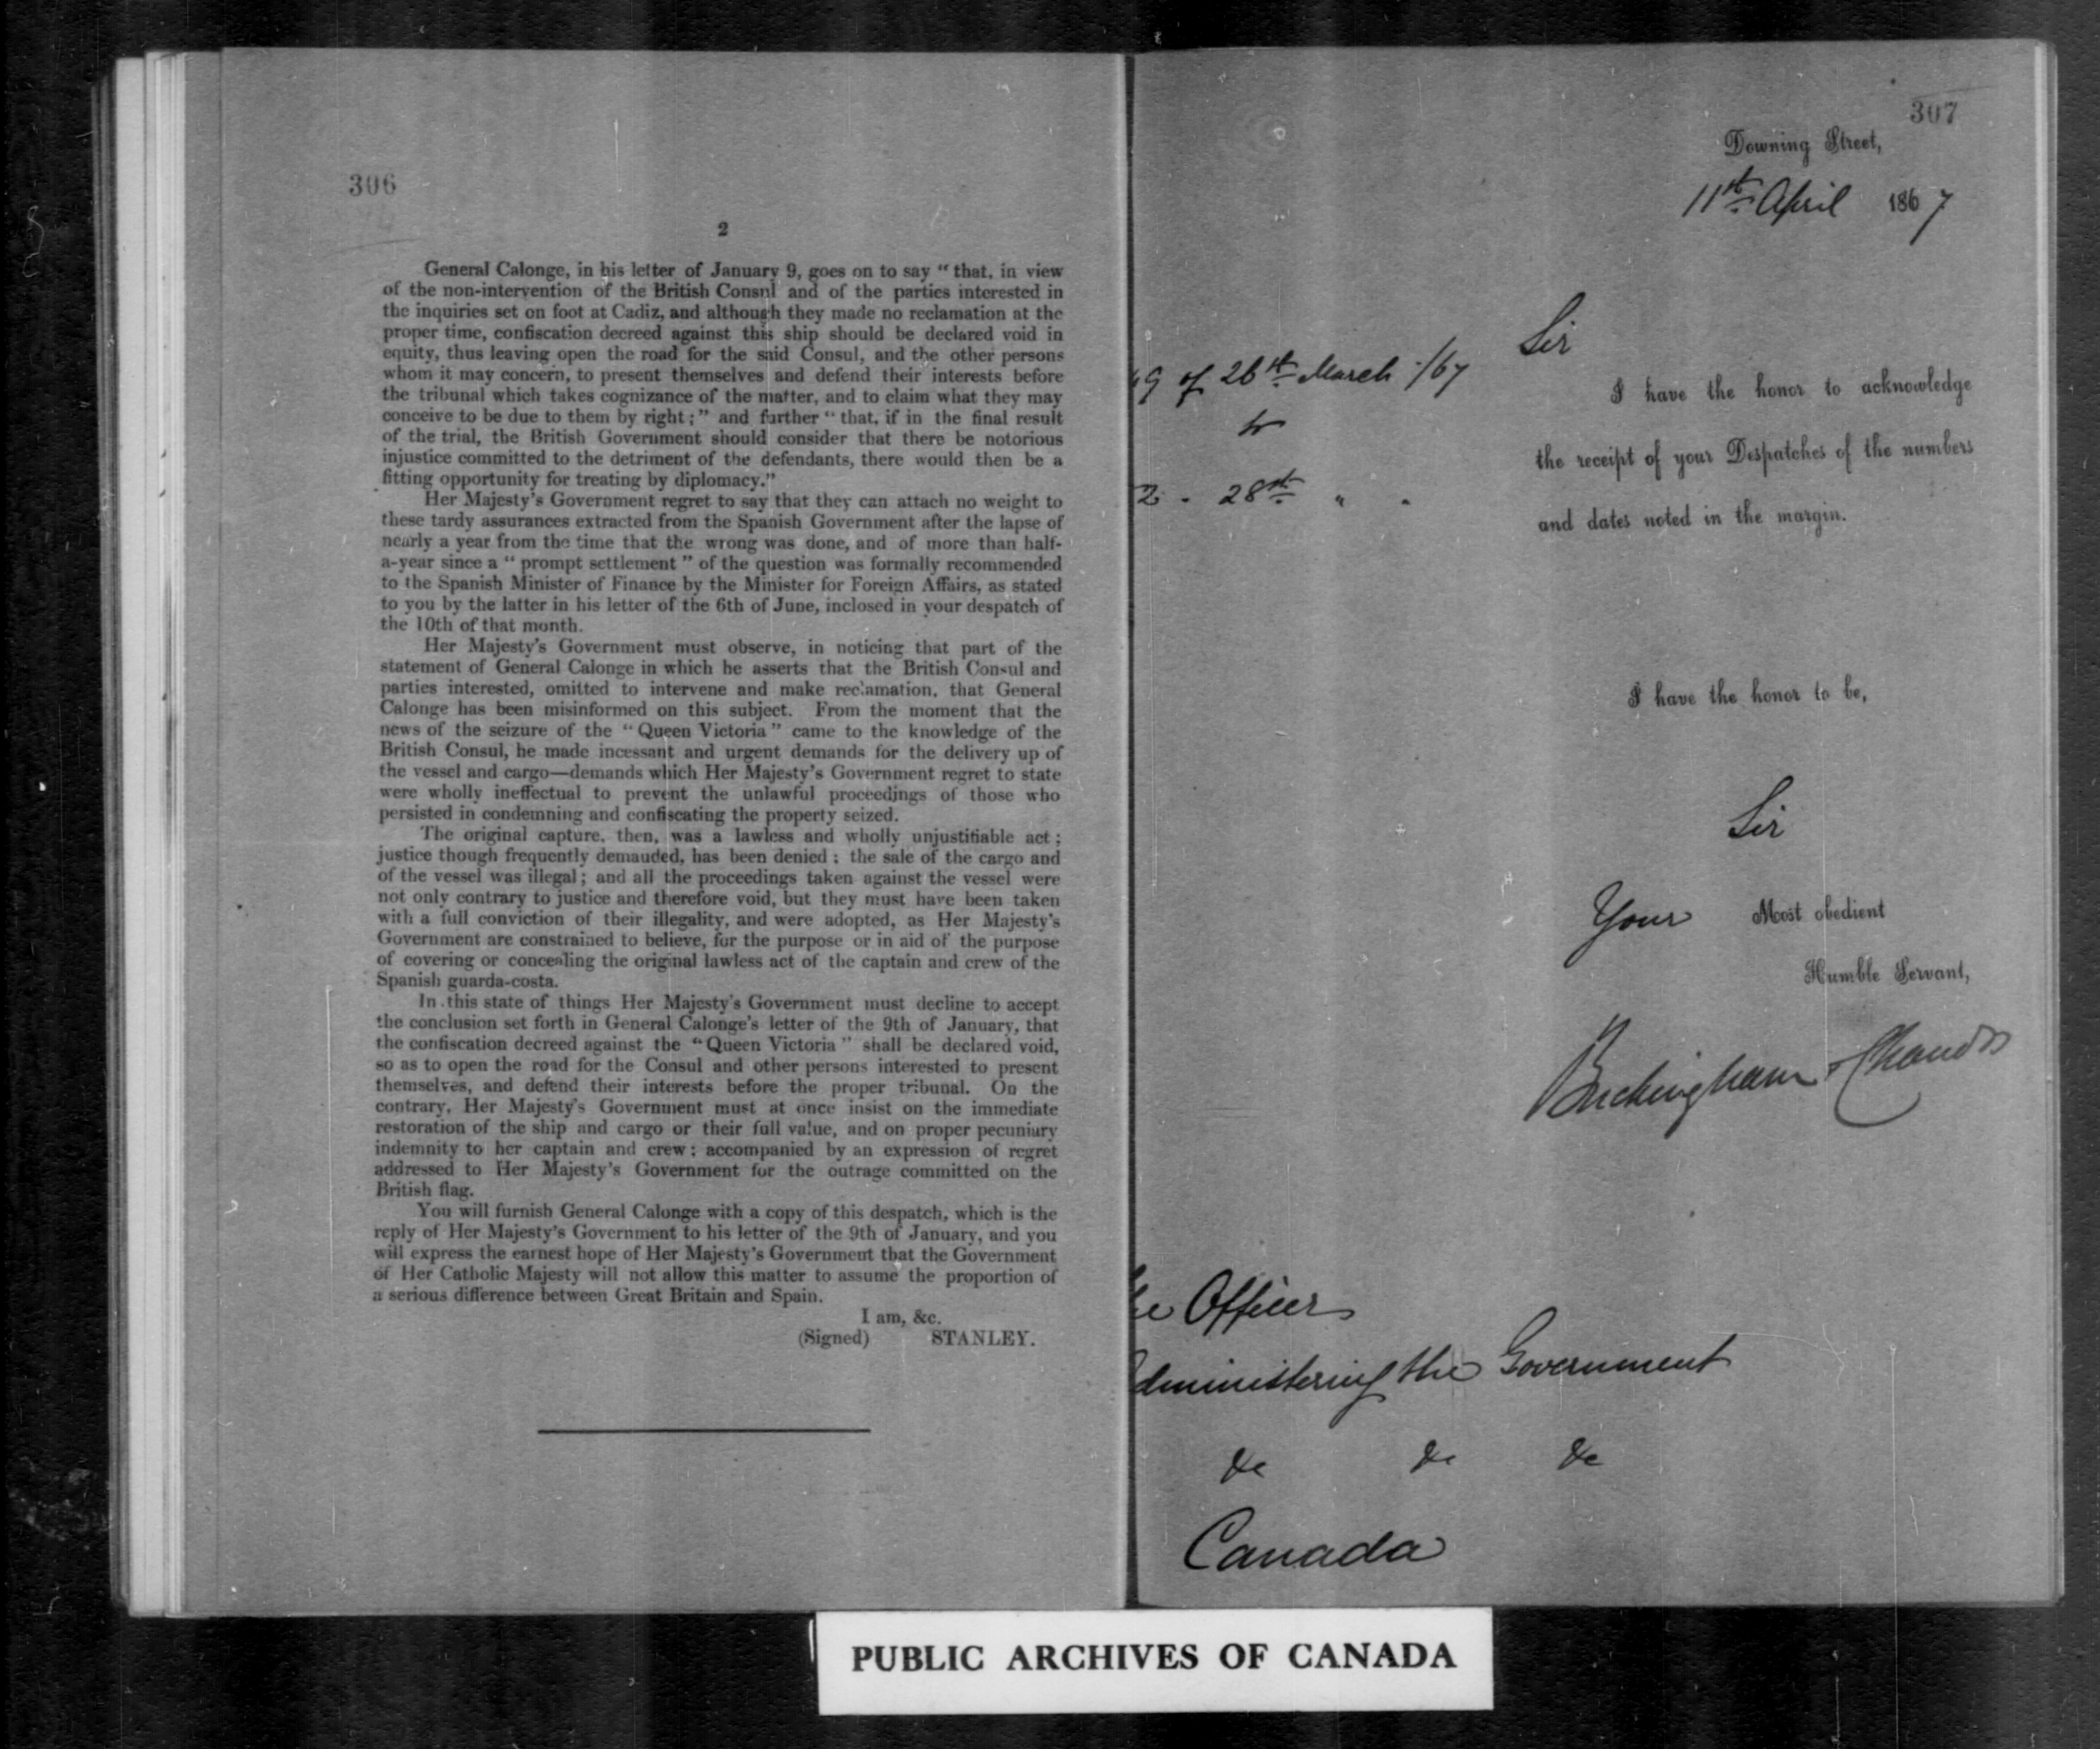 306
2
General Calonge, in his letter of January 9, goes on to say “ that, in view
of the non-intervention of the British Consul and of the parties interested in
the inquiries set on foot at Cadiz, and although they made no reclamation at the
proper time, confiscation decreed against this ship should be declared void in
equity, thus leaving open the road for the said Consul, and the other persons
whom it may concern, to present themselves and defend their interests before
the tribunal which takes cognizance of the matter, and to claim what they may
conceive to be due to them by right ; ” and further “ that, if in the final result
of the trial, the British Government should consider that there be notorious
injustice committed to the detriment of the defendants, there would then be a
fitting opportunity for treating by diplomacy.”
Her Majesty’s Government regret to say that they can attach no weight to
these tardy assurances extracted from the Spanish Government after the lapse of
nearly a year from the time that the wrong was done, and of more than half-
a-year since a “ prompt settlement ” of the question was formally recommended
to the Spanish Minister of Finance by the Minister for Foreign Affairs, as stated
to you by the latter in his letter of the 6th of June, inclosed in your despatch of
the 10th of that month.
Her Majesty’s Government must observe, in noticing that part of the
statement of General Calonge in which he asserts that the British Consul and
parties interested, omitted to intervene and make reclamation, that General
Calonge has been misinformed on this subject. From the moment that the
news of the seizure of the “ Queen Victoria ” came to the knowledge of the
British Consul, he made incessant and urgent demands for the delivery up of
the vessel and cargo—demands which Her Majesty’s Government regret to state
were wholly ineffectual to prevent the unlawful proceedings of those who
persisted in condemning and confiscating the property seized.
The original capture, then, was a lawless and wholly unjustifiable act ;
justice though frequently demauded, has been denied ; the sale of the cargo and
of the vessel was illegal ; and all the proceedings taken against the vessel were
not only contrary to justice and therefore void, but they must have been taken
with a full conviction of their illegality, and were adopted, as Her Majesty’s
Government are constrained to believe, for the purpose or in aid of the purpose
of covering or concealing the original lawless act of the captain and crew of the
Spanish guarda-costa.
In this state of things Her Majesty’s Government must decline to accept
the conclusion set forth in General Calonge’s letter of the 9th of January, that
the confiscation decreed against the “ Queen Victoria ” shall be declared void,
so as to open the road for the Consul and other persons interested to present
themselves, and defend their interests before the proper tribunal. On the
contrary, Her Majesty’s Government must at once insist on the immediate
restoration of the ship and cargo or their full value, and on proper pecuniary
indemnity to her captain and crew ; accompanied by an expression of regret
addressed to Her Majesty’s Government for the outrage committed on the
British flag.
You will furnish General Calonge with a copy of this despatch, which is the
reply of Her Majesty’s Government to his letter of the 9th of January, and you
will express the earnest hope of Her Majesty’s Government that the Government
of Her Catholic Majesty will not allow this matter to assume the proportion of
a serious difference between Great Britain and Spain.
I am, &c.
(Signed) STANLEY.
307
Downing Street,
11st April 1867
Sir
9 of 26st March /67
to
2 - 28st " "
I have the honor to acknowledge
the receipt of your Despatches of the numbers
and dates noted in the margin.
I have the honor to be,
Sir
Your Most obedient
Humble Servant,
Buckingham & Chandos
Officer
the Government
&c &c &c
Canada
PUBLIC ARCHIVES OF CANADA